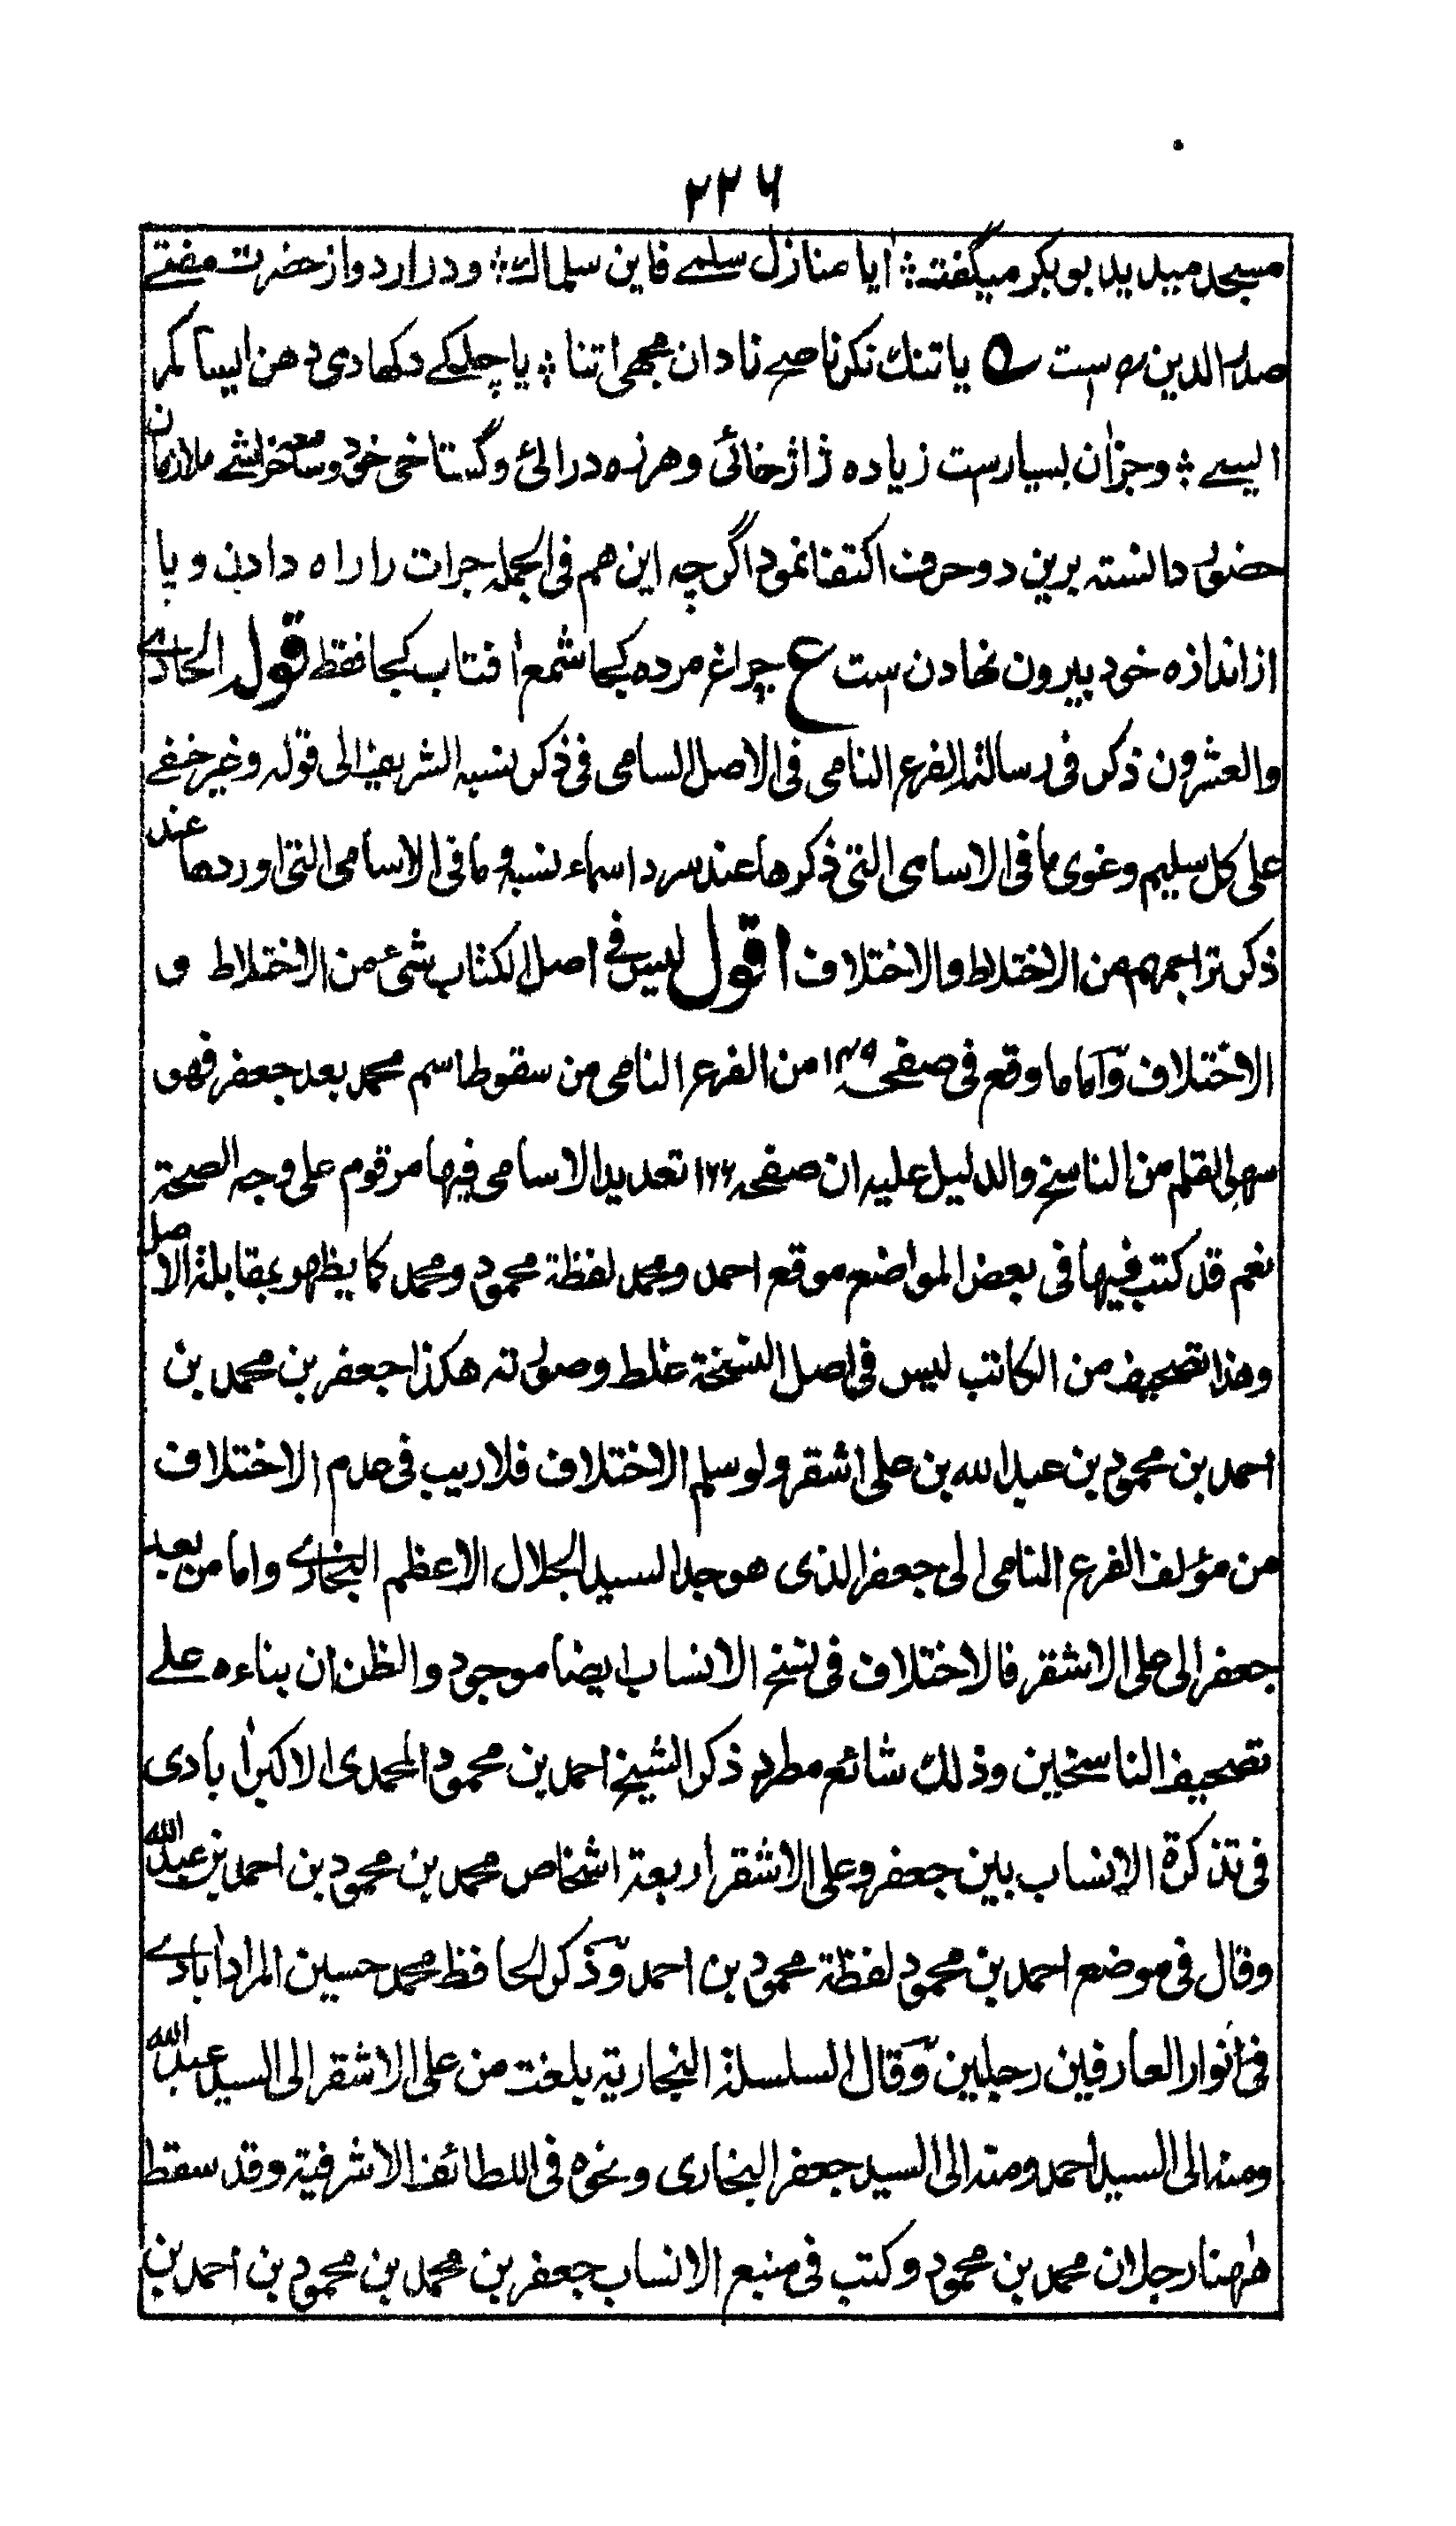 ۲۲۶
مسجد میدید بوبکر میگفته ؞ ایا منازل سلمے فاین سلماك ؞ ودر اردو از حضرت مفتے
صدر الدین ست یا تنك نکر ناصح نادان مجھی اتنا ؞ یا چل کے دکھا دی دهن ایسا کمر
ایسے ؞ وجزآن بسیارست زیاده ژاژخائی وهرزه درائی وگستاخی خود وسمع خراشے ملازمان
حضور دانسته برین دو حرف اکتفا نمود اگرچه این هم فی الجمله جرات را راه دادن وپا
از اندازه خود بیرون نهادن ست ع چراغ مرده کجا شمع افتاب کجا فقط قوله الحادی
والعشرون ذکر فی رسالة الفرع النامی فی الاصل السامی فی ذکر نسبه الشریف الی قوله وغیر خفے
علی کل سلیم وغوی ما فی الاسامی التی ذکرها عند سرد اسماء نسبه وما فی الاسامی التی اوردها عند
ذکر تراجمهم من الاختلاط والاختلاف اقول لیس فے اصل الکتاب شئ من الاختلاط و
الاختلاف وآما ما وقع فی صفحه ۱۴۹ من الفرع النامی من سقوط اسم محمد بعد جعفر فهو
سهو القلم من الناسخ والدلیل علیه ان صفحه ۱۲۶ تعدید الاسامی فیها مرقوم علی وجه الصحة
نعم قد کتب فیها فی بعض المواضع موقع احمد ومحمد لفظة محمود ومحمد کما یظهر بمقابلة الاصل
وهذا تصحیف من الکاتب لیس فی اصل النسخة غلط وصورته هکذا جعفر بن محمد بن
احمد بن محمود بن عبد الله بن علی اشقر ولو سلم الاختلاف فلا ریب فی عدم الاختلاف
من مؤلف الفرع النامی الی جعفر الذی هو جد السید الجلال الاعظم البخاری واما من بعد
جعفر الی علی الاشقر فالاختلاف فی نسخ الانساب ایضا موجود والظن ان بناءه علے
تصحیف الناسخین وذلك شائع مطرد ذکر الشیخ احمد بن محمود المحمدی الاکبرآبادی
فی تذکرة الانساب بین جعفر وعلی الاشقر اربعة اشخاص محمد بن محمود بن احمد بن عبد الله
وقال فی موضع احمد بن محمود لفظة محمود بن احمد وذکر الحافظ محمد حسین المرادآبادی
فی انوار العارفین رجلین وقال السلسلة البخاریة بلغت من علی الاشقر الی السید عبد الله
ومنه الی السید احمد ومنه الی السید جعفر البخاری ونحوه فی اللطائف الاشرفیة وقد سقط
ههنا رجلان محمد بن محمود وکتب فی منبع الانساب جعفر بن محمد بن محمود بن احمد بن